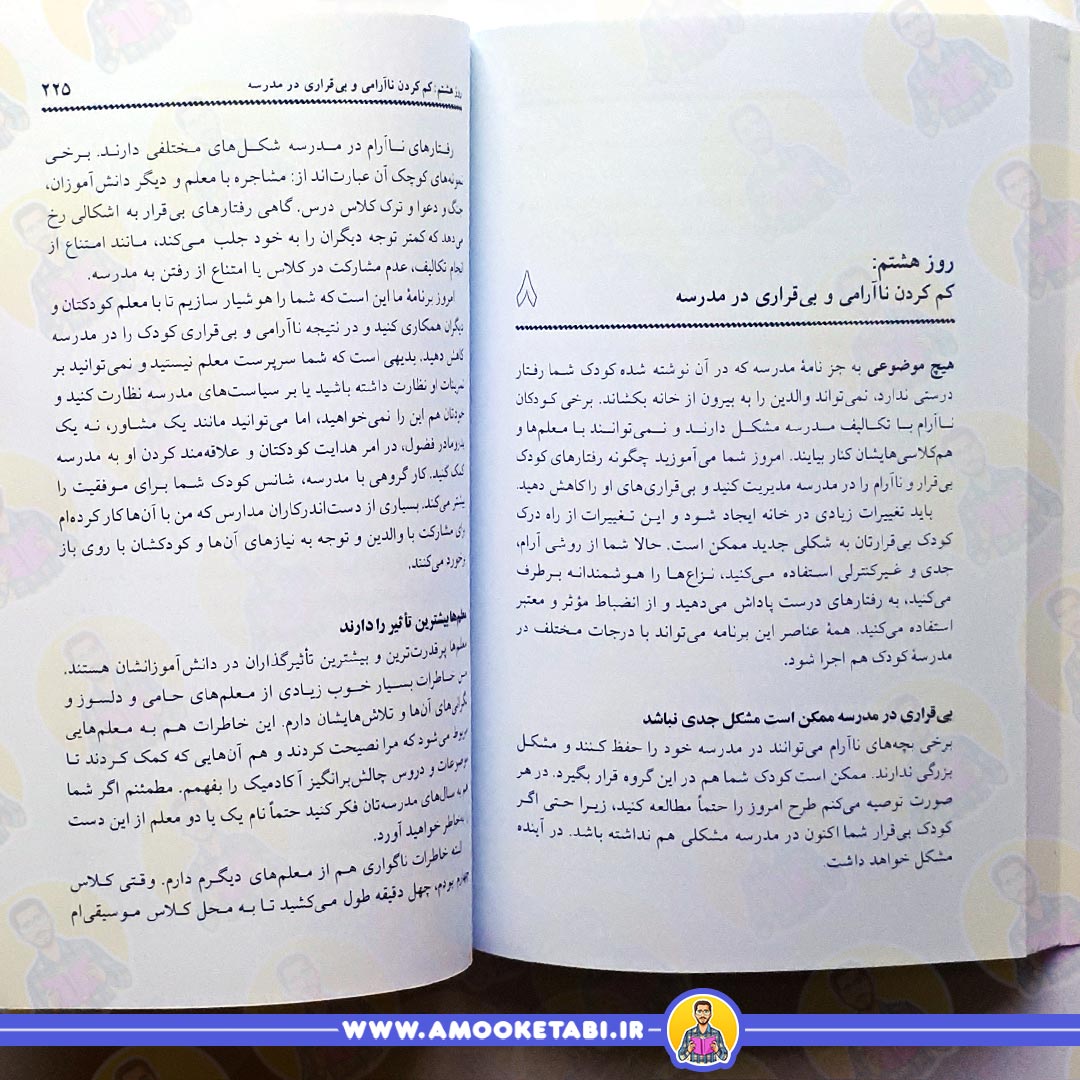 روز هشتم:
کم کردن ناآرامی و بی‌قراری در مدرسه
۸
هیچ موضوعی به جز نامهٔ مدرسه که در آن نوشته شده کودک شما رفتار
درستی ندارد، نمی‌تواند والدین را به بیرون از خانه بکشاند. برخی کودکان
ناآرام با تکالیف مدرسه مشکل دارند و نمی‌توانند با معلم‌ها و
هم‌کلاسی‌هایشان کنار بیایند. امروز شما می‌آموزید چگونه رفتارهای کودک
بی‌قرار و ناآرام را در مدرسه مدیریت کنید و بی‌قراری‌های او را کاهش دهید.
باید تغییرات زیادی در خانه ایجاد شود و این تغییرات از راه درک
کودک بی‌قرارتان به شکلی جدید ممکن است. حالا شما از روشی آرام،
جدی و غیرکنترلی استفاده می‌کنید، نزاع‌ها را هوشمندانه برطرف
می‌کنید، به رفتارهای درست پاداش می‌دهید و از انضباط مؤثر و معتبر
استفاده می‌کنید. همهٔ عناصر این برنامه می‌تواند با درجات مختلف در
مدرسهٔ کودک هم اجرا شود.
بی‌قراری در مدرسه ممکن است مشکل جدی نباشد
برخی بچه‌های ناآرام می‌توانند در مدرسه خود را حفظ کنند و مشکل
بزرگی ندارند. ممکن است کودک شما هم در این گروه قرار بگیرد. در هر
صورت توصیه می‌کنم طرح امروز را حتماً مطالعه کنید، زیرا حتی اگر
کودک بی‌قرار شما اکنون در مدرسه مشکلی هم نداشته باشد. در آینده
مشکل خواهد داشت.
روز هشتم: کم کردن ناآرامی و بی‌قراری در مدرسه ۲۲۵
رفتارهای ناآرام در مدرسه شکل‌های مختلفی دارند. برخی
نمونه‌های کوچک آن عبارت‌اند از: مشاجره با معلم و دیگر دانش‌آموزان،
جنگ و دعوا و ترک کلاس درس. گاهی رفتارهای بی‌قرار به اشکالی رخ
می‌دهد که کمتر توجه دیگران را به خود جلب می‌کند، مانند امتناع از
انجام تکالیف، عدم مشارکت در کلاس یا امتناع از رفتن به مدرسه.
امروز برنامهٔ ما این است که شما را هوشیار سازیم تا با معلم کودکتان و
دیگران همکاری کنید و در نتیجه ناآرامی و بی‌قراری کودک را در مدرسه
کاهش دهید. بدیهی است که شما سرپرست معلم نیستید و نمی‌توانید بر
تمرینات او نظارت داشته باشید یا بر سیاست‌های مدرسه نظارت کنید و
خودتان هم این را نمی‌خواهید، اما می‌توانید مانند یک مشاور، نه یک
پدرومادر فضول، در امر هدایت کودکتان و علاقه‌مند کردن او به مدرسه
کمک کنید. کار گروهی با مدرسه، شانس کودک شما برای موفقیت را
بیشتر می‌کند. بسیاری از دست‌اندرکاران مدارس که من با آن‌ها کار کرده‌ام
برای مشارکت با والدین و توجه به نیازهای آن‌ها و کودکشان با روی باز
برخورد می‌کنند.
معلم‌ها بیشترین تأثیر را دارند
معلم‌ها پرقدرت‌ترین و بیشترین تأثیرگذاران در دانش‌آموزانشان هستند.
من خاطرات بسیار خوب زیادی از معلم‌های حامی و دلسوز و
نگرانی‌های آن‌ها و تلاش‌هایشان دارم. این خاطرات هم به معلم‌هایی
مربوط می‌شود که مرا نصیحت کردند و هم آن‌هایی که کمک کردند تا
موضوعات و دروس چالش‌برانگیز آکادمیک را بفهمم. مطمئنم اگر شما
هم به سال‌های مدرسه‌تان فکر کنید حتماً نام یک یا دو معلم از این دست
به‌خاطر خواهید آورد.
البته خاطرات ناگواری هم از معلم‌های دیگرم دارم. وقتی کلاس
چهارم بودم، چهل دقیقه طول می‌کشید تا به محل کلاس موسیقی‌ام
WWW.AMOOKETABI.IR